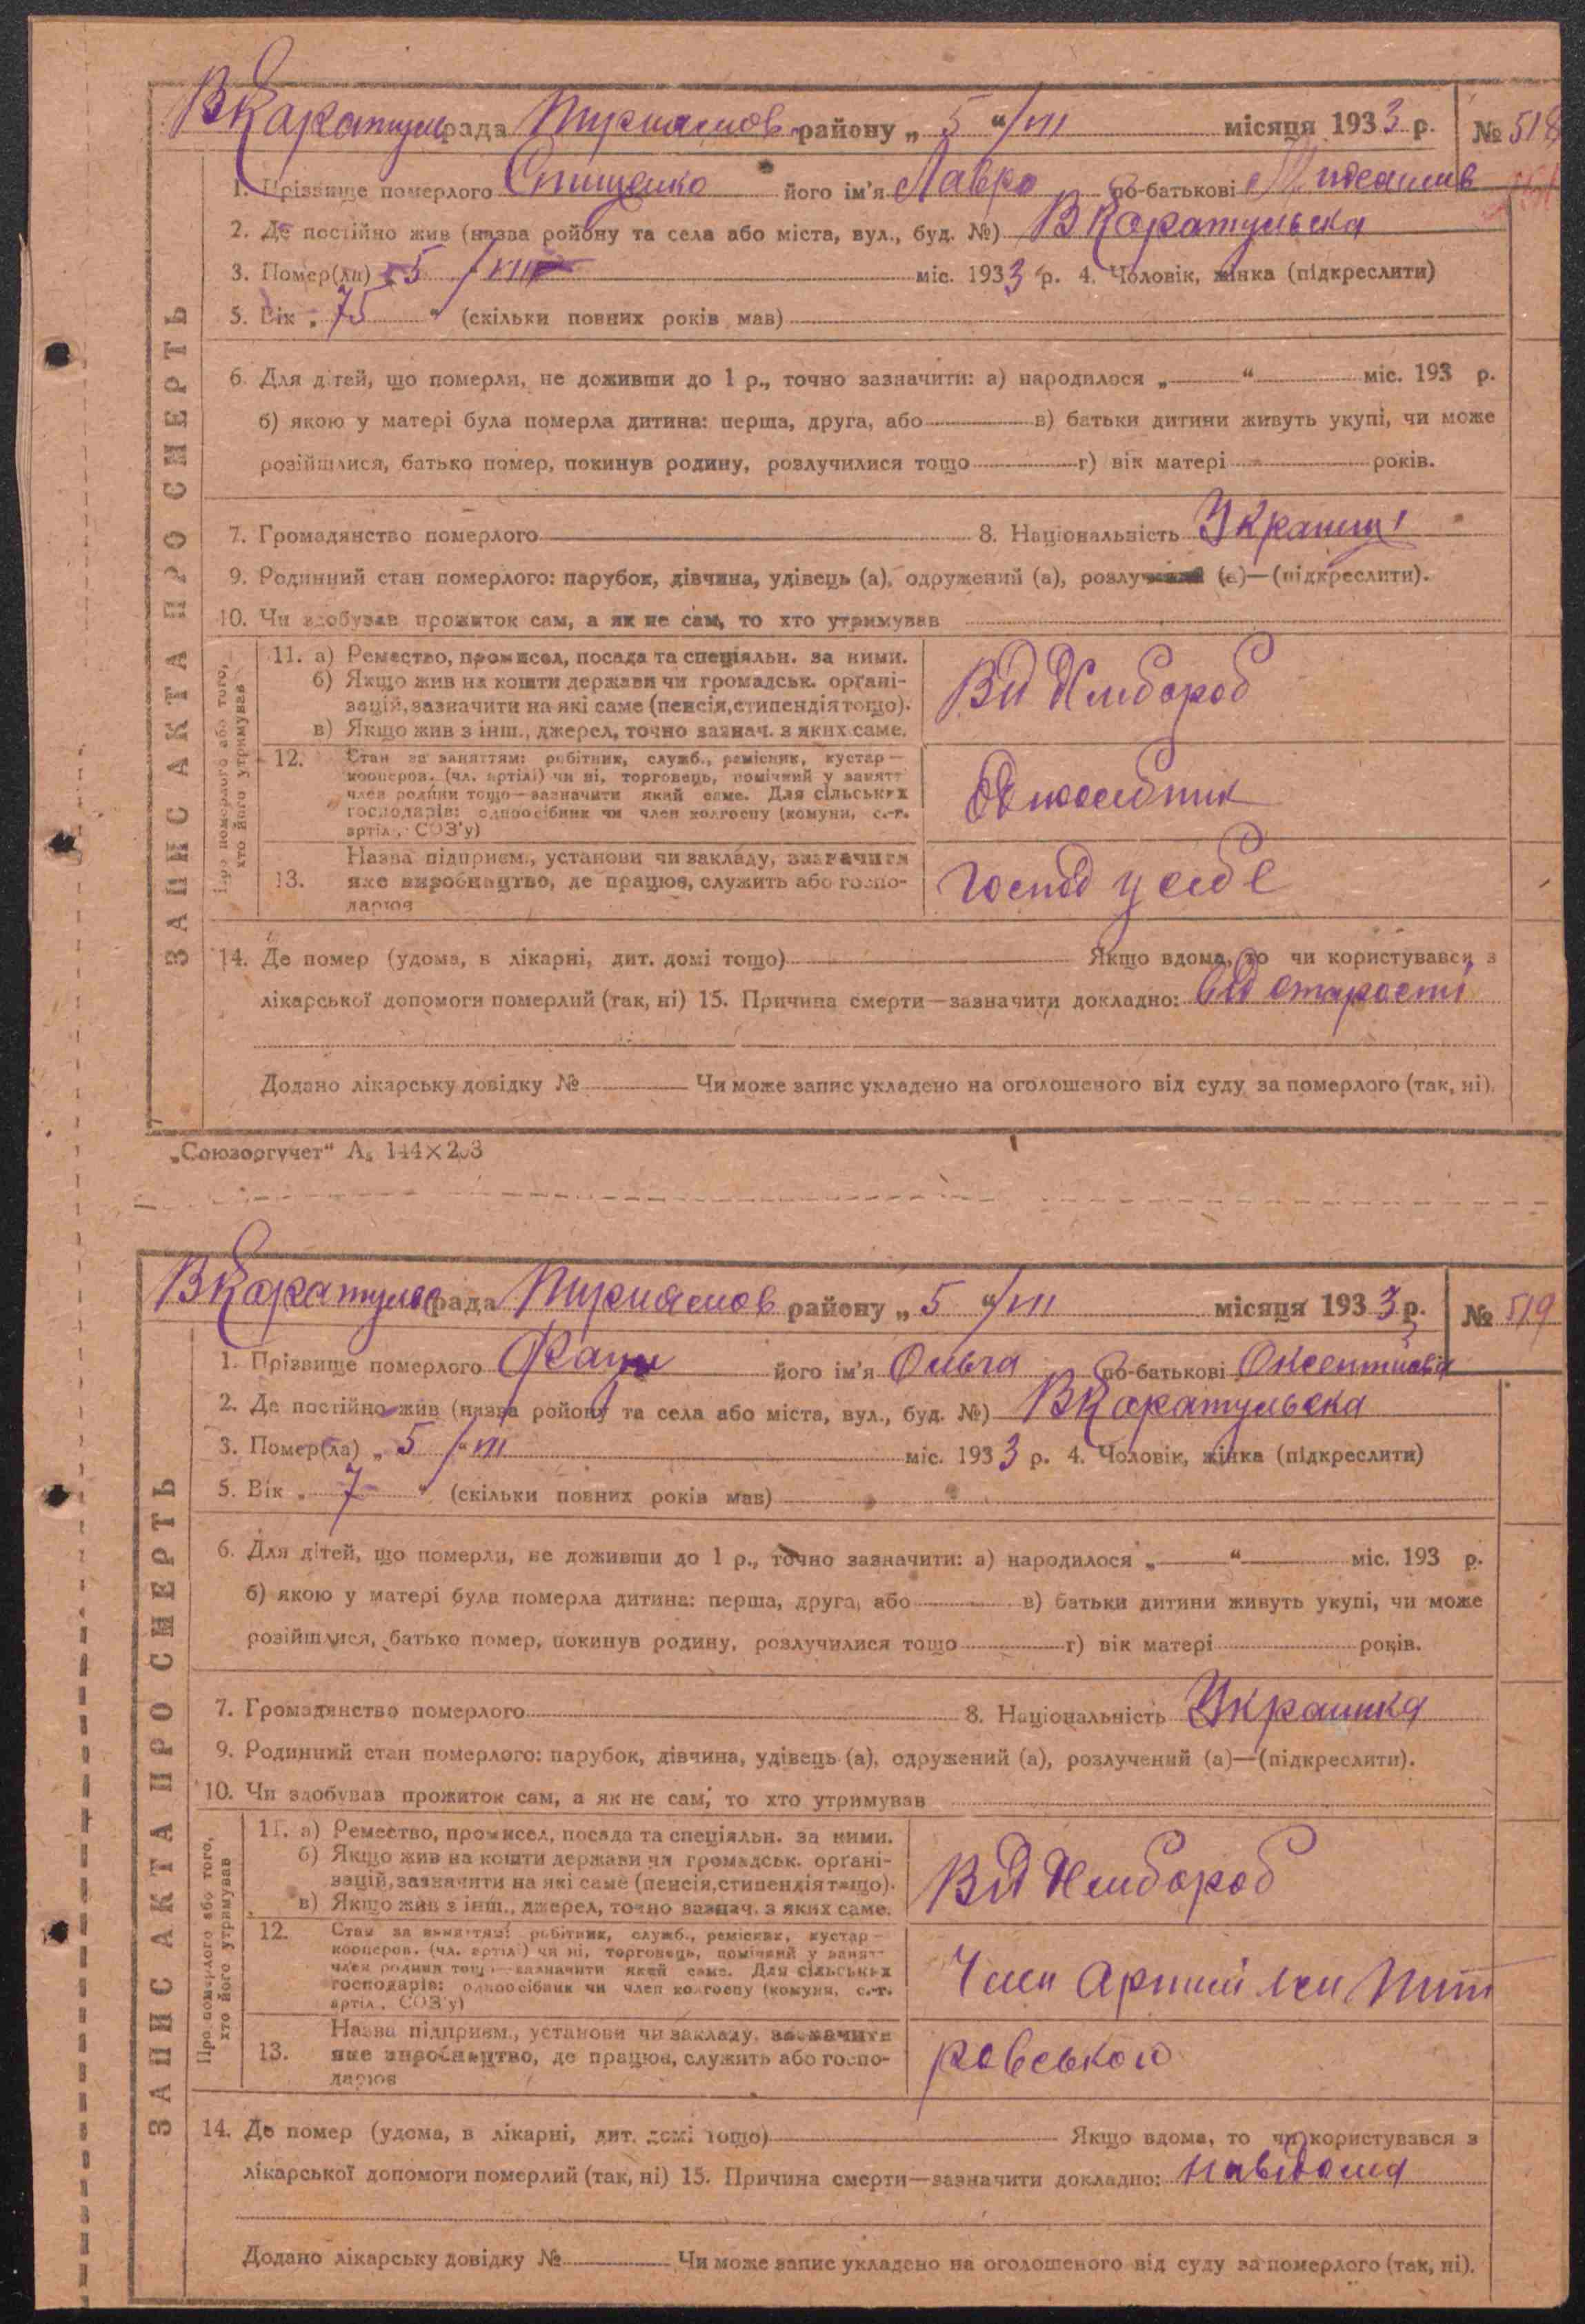 ВКаратул рада Переяслов району „ 5 “/VIII місяця 1933 р. № 518
1. Прізвище померлого його ім'я Лавро по-батькові
2. Де постійно жив (назва ройону та села або міста, вул., буд. №) ВКаратульска
3. Помер(ла) 5/VIII міс. 1933 р. 4. Чоловік, жінка (підкреслити)
5. Вік „ 75 “ (скільки повних років мав)
6. Для дітей, що померли, не доживши до 1 р., точно зазначити: а) народилося „ “ міс. 193 р.
б) якою у матері була померла дитина: перша, друга, або в) батьки дитини живуть укупі, чи може
розійшлися, батько помер, покинув родину, розлучилися тощо г) вік матері років.
7. Громадянство померлого 8. Національність
9. Родинний стан померлого: парубок, дівчина, удівець (а), одружений (а), розлучений (а)—(підкреслити).
10. Чи здобував прожиток сам, а як не сам, то хто утримував
ЗАПИС АКТА ПРО СМЕРТЬ
Про померлого або того, хто його утримував
11. а) Ремество, промисел, посада та спеціяльн. за ними.
б) Якщо жив на кошти держави чи громадськ. органі-
зацій, зазначити на які саме (пенсія, стипендія тощо).
в) Якщо жив з інш., джерел, точно зазнач. з яких саме.
Від Хлибороб
12. Стан за заняттям: робітник, служб., ремісник, кустар—
кооперов. (чл. артілі) чи ні, торговець, помічний у занятт
член родини тощо—зазначити який саме. Для сільських
господарів: одноосібник чи член колгоспу (комуни, с.-г.
артіл., СОЗ'у)
Одноосібник
13. Назва підприєм., установи чи закладу, зазначити
яке виробництво, де працює, служить або госпо-
дарює
Господ у себе
14. Де помер (удома, в лікарні, дит. домі тощо) Якщо вдома, то чи користувався з
лікарської допомоги померлий (так, ні) 15. Причина смерти—зазначити докладно: Від старости
Додано лікарську довідку № Чи може запис укладено на оголошеного від суду за померлого (так, ні).
„Союзоргучет“
ВКаратулс рада Переяслов району „ 5 “/VIII місяця 1933 р. № 519
1. Прізвище померлого його ім'я Ольга по-батькові Оксентиєва
2. Де постійно жив (назва ройону та села або міста, вул., буд. №) ВКаратульска
3. Помер(ла) „ 5 “/VIII міс. 1933 р. 4. Чоловік, жінка (підкреслити)
5. Вік „ 7 “ (скільки повних років мав)
6. Для дітей, що померли, не доживши до 1 р., точно зазначити: а) народилося „ “ міс. 193 р.
б) якою у матері була померла дитина: перша, друга, або в) батьки дитини живуть укупі, чи може
розійшлися, батько помер, покинув родину, розлучилися тощо г) вік матері років.
7. Громадянство померлого 8. Національність Українка
9. Родинний стан померлого: парубок, дівчина, удівець (а), одружений (а), розлучений (а)—(підкреслити).
10. Чи здобував прожиток сам, а як не сам, то хто утримував
ЗАПИС АКТА ПРО СМЕРТЬ
Про померлого або того, хто його утримував
11. а) Ремество, промисел, посада та спеціяльн. за ними.
б) Якщо жив на кошти держави чи громадськ. органі-
зацій, зазначити на які саме (пенсія, стипендія тощо).
в) Якщо жив з інш., джерел, точно зазнач. з яких саме.
Від Хлибороб
12. Стан за заняттям: робітник, служб., ремісник, кустар—
кооперов. (чл. артілі) чи ні, торговець, помічний у занятт
член родини тощо—зазначити який саме. Для сільських
господарів: одноосібник чи член колгоспу (комуни, с.-г.
артіл., СОЗ'у)
Член Артилі
13. Назва підприєм., установи чи закладу, зазначити
яке виробництво, де працює, служить або госпо-
дарює
ровського
14. Де помер (удома, в лікарні, дит. домі тощо) Якщо вдома, то чи користувався з
лікарської допомоги померлий (так, ні) 15. Причина смерти—зазначити докладно: Невідома
Додано лікарську довідку № Чи може запис укладено на оголошеного від суду за померлого (так, ні).